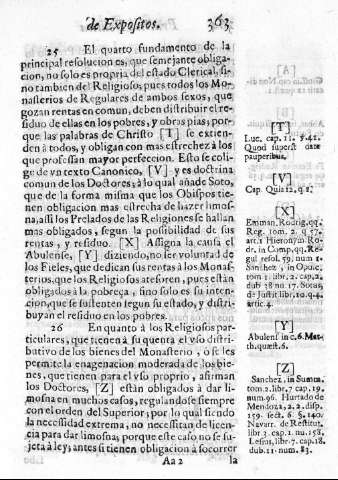 de Expositos. 363
25 El quarto fundamento de la
principal resolucion es, que semejante obliga-
cion, no solo es propria del estado Clerical, si-
no tambien del Religioso, pues todos los Mo-
nasterios de Regulares de ambos sexos, que
gozan rentas en comun, deben distribuir el re-
siduo de ellas en los pobres, y obras pias; por-
que las palabras de Christo [T] se extien-
den à todos, y obligan con mas estrechez à los
que professan mayor perfeccion. Esto se coli-
ge de vn texto Canonico, [V] y es doctrina
comun de los Doctores; à lo qual añade Soto,
que de la forma misma que los Obispos tie-
nen obligacion mas estrecha de hazer limos-
na, assi los Prelados de las Religiones se hallan
mas obligados, segun la possibilidad de sus
rentas, y residuo. [X] Assigna la causa el
Abulense, [Y] diziendo, no ser voluntad de
los Fieles, que dedican sus rentas à los Monas-
terios, que los Religiosos atesoren, pues estàn
obligados à la pobreça, sino solo es su inten-
cion, que se sustenten segun su estado, y distri-
buyan el residuo en los pobres.
26 En quanto à los Religiosos par-
ticulares, que tienen à su quenta el vso distri-
butivo de los bienes del Monasterio, ò se les
permite la enagenacion moderada de los bie-
nes, que tienen para el vso proprio, afirman
los Doctores, [Z] estàn obligados à dar li-
mosna en muchos casos, regulandose siempre
con el orden del Superior; por lo qual siendo
la necessidad extrema, no necessitan de licen-
cia para dar limosna, porque este caso no se su-
jeta à ley, antes si tienen obligacion à socorrer
Aa 2 la
[T]
Luc. cap. 11. v. 41.
Quod superest date
pauperibus.
[V]
Cap. Quia 12. q. 1.
[X]
Emman. Rodrig. qq.
Reg. tom. 2. q. 57.
art. 1 Hieronym. Ro-
dr. in Comp. qq. Re-
gul. resol. 59. num 1
Sanchez, in Opusc.
tom 1. lib. 2. cap. 2.
dub 38 no 17. Sotus,
de Justit libr. 10. q. 4.
artic 4
[Y]
Abulens in c. 6. Mat-
th. quæst. 6.
[Z]
Sanchez, in Summa.
tom 2. libr. 7. cap. 19.
num. 96. Hurtado de
Mendoza, 2. 2. disp.
159. sect. 6. §. 140.
Navarr. de Restitut.
libr. 3. cap. 1. nu. 158.
Lesius, libr. 7. cap. 18.
dub. 11. num. 83.